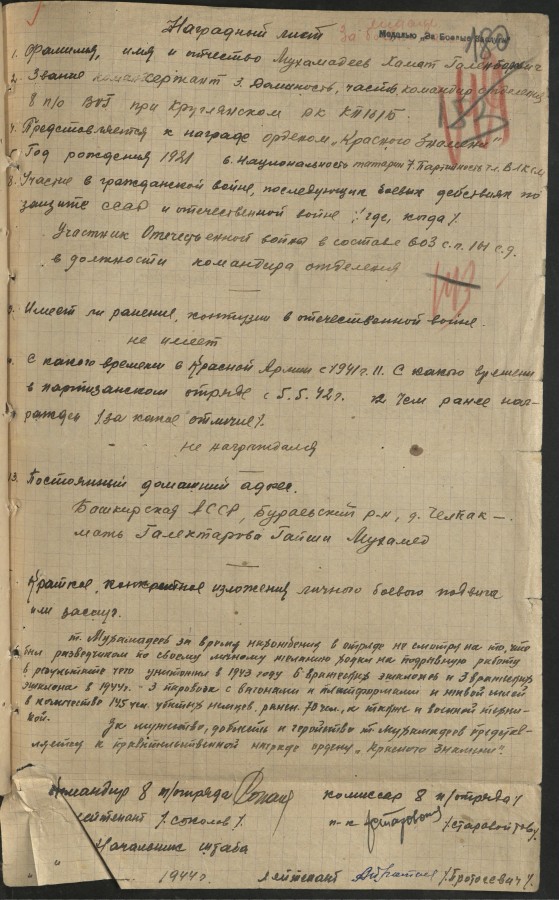 Наградный лист
медаль
За бо
Медалью „За Боевые Заслуги"
180
1. Фамилия, имя и отчество Мухамадеев Хамат
2. Звание 3. Должность, часть командир отделения
8 п/о при Круглянском РК КП/б/Б
4. Представляется к награде орденом „Красного Знамени"
5. Год рождения 1921 6. Национальность татарин 7. Партийность чл. ВЛКСМ
8. Участие в гражданской войне, последующих боевых действиях по
защите СССР и отечественной войне /где, когда/.
Участник Отечественной войны в составе 603 с.п. 161 с.д.
в должности командира отделения
143
9. Имеет ли ранения, контузии в отечественной войне.
не имеет
С какого времени в Красной Армии с 1941 г. 11. С какого времени
в партизанском отряде с 5.5.42 г. 12 Чем ранее наг-
ражден /за какое отличие/.
не награждался
13. Постоянный домашний адрес.
Башкирская АССР, Бураевский р-н, д. Челкак —
мать Гайша Мухамед
Краткое, конкретное изложения личного боевого подвига
или заслуг.
т. Мухамадеев за время нахождения в отряде не смотря на то, что
был разведчиком по своему личному желанию ходил на подрывную работу
в результате чего уничтожил в 1943 году 6 вражеских эшелонов и 3 вражеских
эшелона в 1944 г. - 3 паровоза с вагонами и платформами и живой силой
в количестве 145 чел. убитых немцев, ранен. 70 чел., а также и военной техни-
кой.
За мужество, доблесть и геройство т. Мухамадеев представ-
ляется к правительственной награде ордену „Красного Знамени".
Командир 8 п/отряда
лейтенант /Соколов/.
комиссар 8 п/отряда/
п-к /Старовойтов/.
Начальник штаба
" " 1944 г. Лейтенант /Протосевич/.